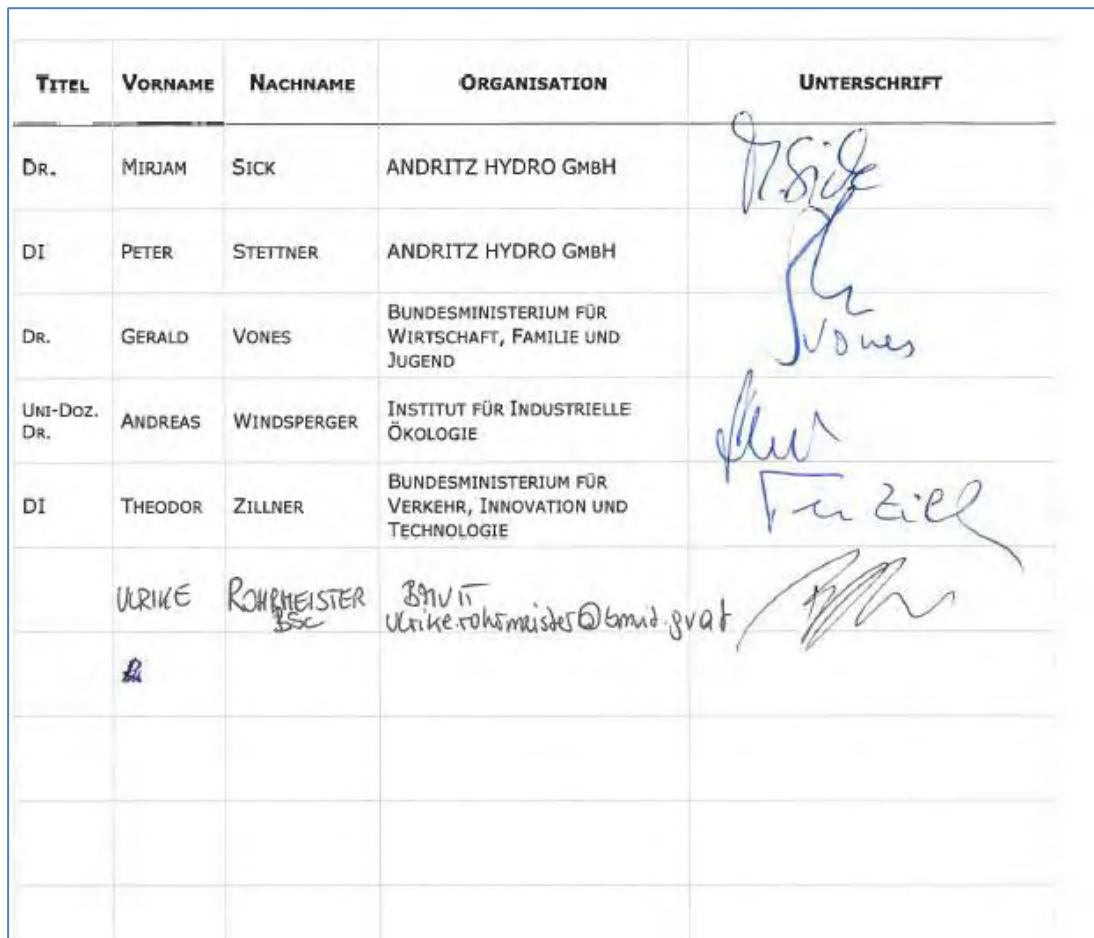 TITEL VORNAME NACHNAME ORGANISATION UNTERSCHRIFT
DR. MIRJAM SICK ANDRITZ HYDRO GMBH M. Sick
DI PETER STETTNER ANDRITZ HYDRO GMBH
DR. GERALD VONES BUNDESMINISTERIUM FÜR
WIRTSCHAFT, FAMILIE UND
JUGEND
Vones
UNI-DOZ.
DR.
ANDREAS WINDSPERGER INSTITUT FÜR INDUSTRIELLE
ÖKOLOGIE
DI THEODOR ZILLNER BUNDESMINISTERIUM FÜR
VERKEHR, INNOVATION UND
TECHNOLOGIE
ULRIKE ROHRMEISTER BMVIT
BSc ulrike.rohrmeister@bmvit.gv.at